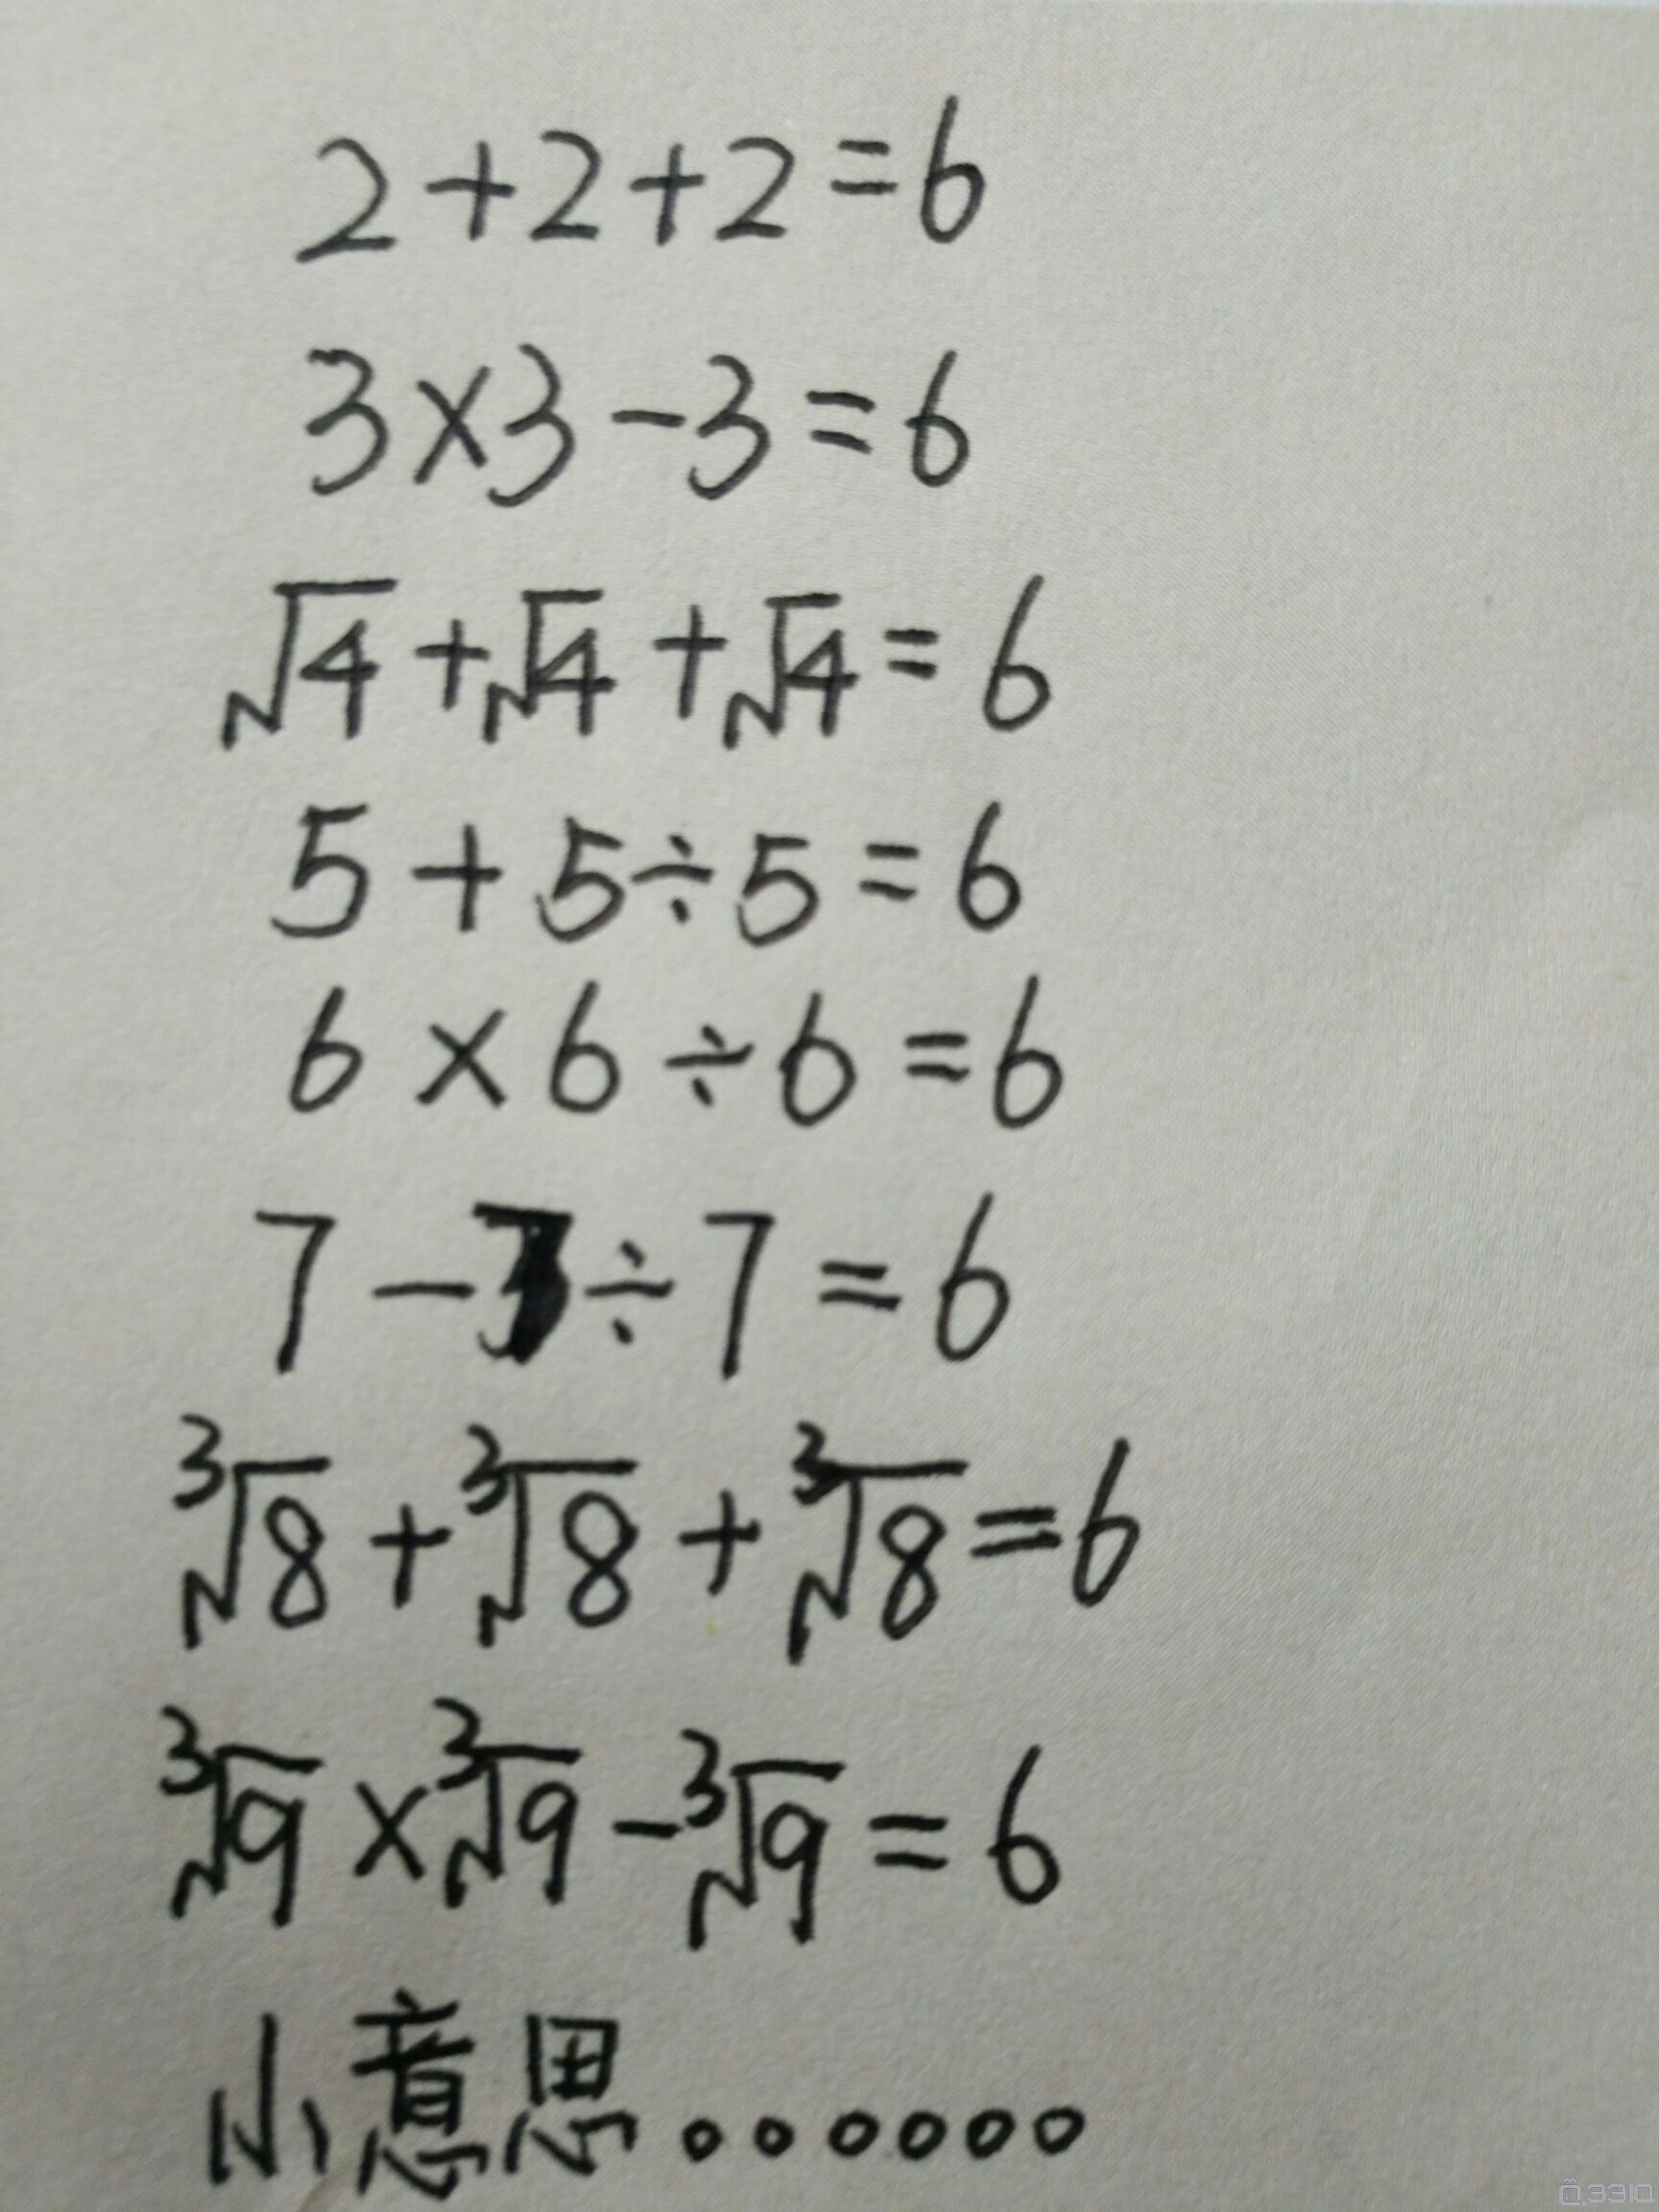 2+2+2=6
3×3-3=6
√4+√4+√4=6
5+5÷5=6
6×6÷6=6
7-7÷7=6
³√8+³√8+³√8=6
³√9×³√9-³√9=6
小意思。。。。。。